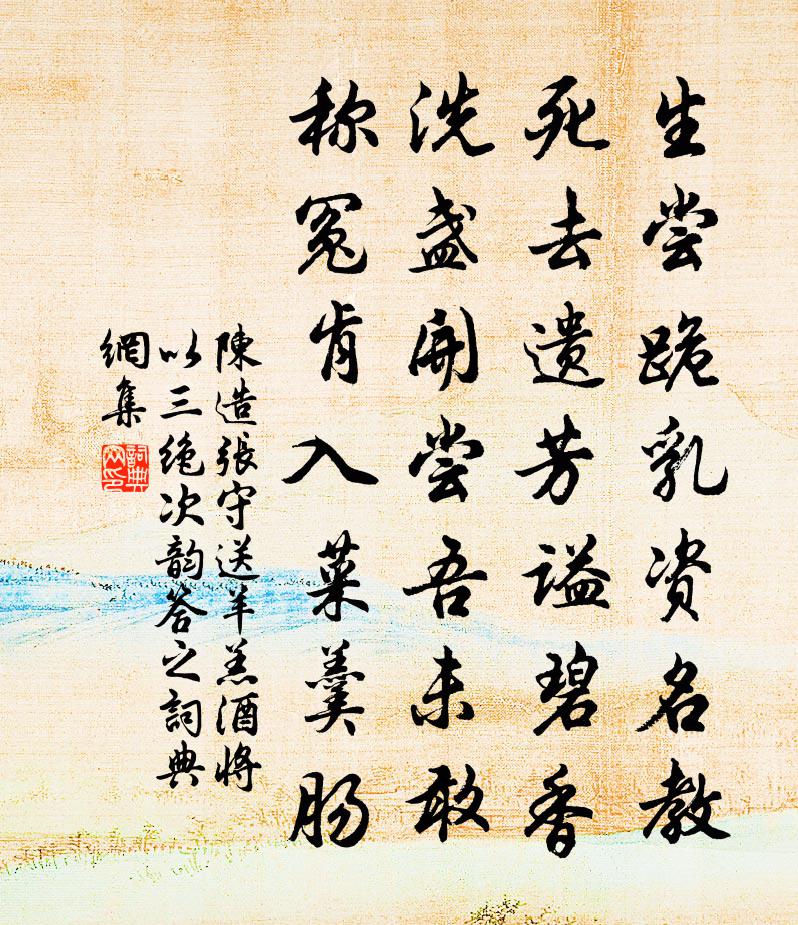 生尝跪乳资名教
死去遗芳谥碧香
洗盏开尝吾未敢
称冤肯入菜羹肠
陳造張守送羊羔酒將
以三绝次韵答之詞典
網集
詞典